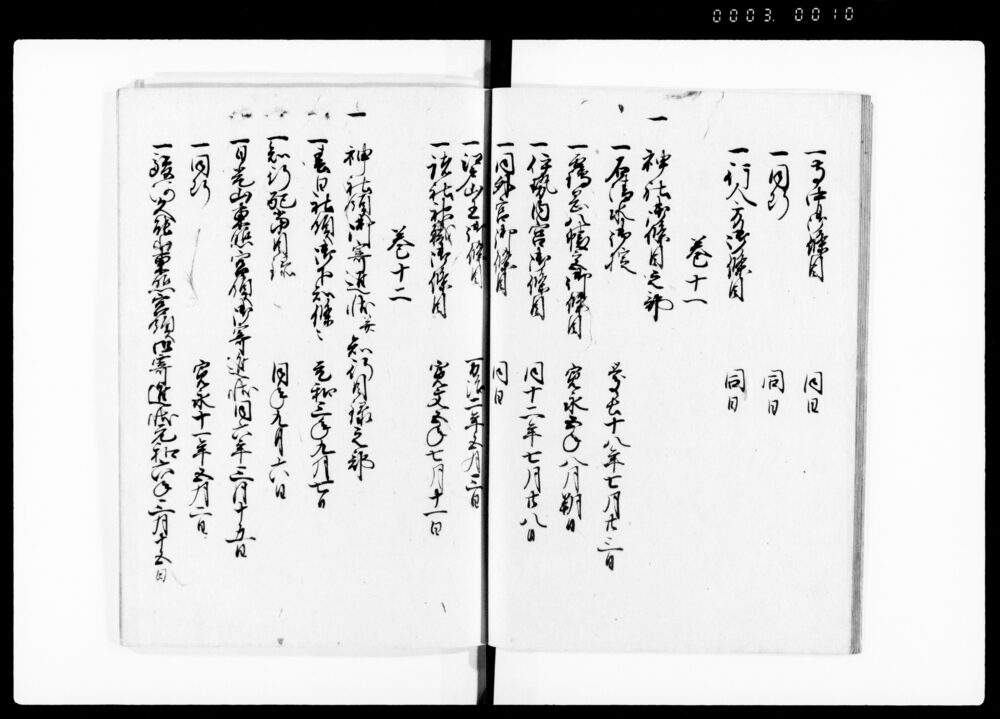 0003.0010
一寺中御條目 同日
一同断 同日
一行人方御條目 同日
巻十一
一 神社御條目之部
一石清水御掟 慶長十八年七月廿三日
一鶴岡八幡宮御條目 寛永五年八月朔日
一伊勢内宮御條目 同十二年七月廿八日
一同外宮御條目 同日
一 山王御條目 万治二年五月三日
一諸社祢宜御條目 寛文五年七月十一日
巻十二
一 神社領御寄進状并知行目録之部
一春日社領御下知條々 元和三年九月七日
一知行配当目録 同年九月六日
一日光山東照宮領御寄進状 同六年三月十五日
一同断 寛永十一年五月二日
一 東照宮領御寄進状 元和六年三月十五日